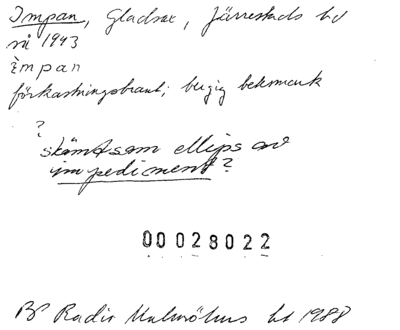 Impan, Gladsax, Järrestads hd
rä 1943
ìmpan
förkastningsbrant; bergig betesmark
?
skämtsam ellips av
impediment?
00028022
BP Radio Malmöhus ht 1988